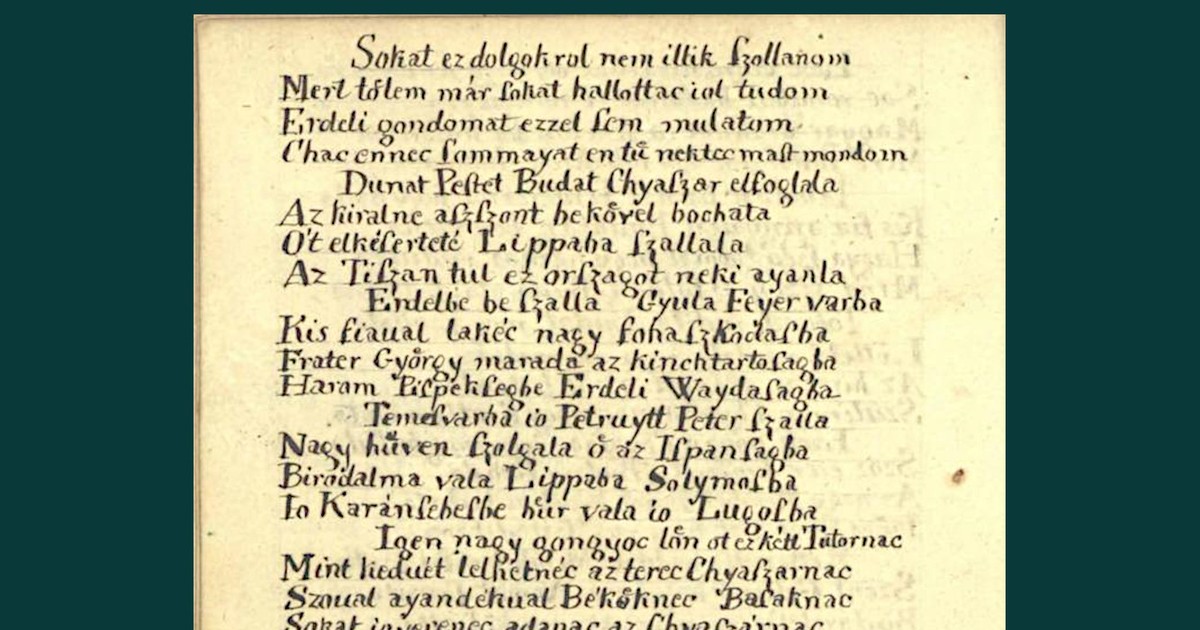 Sokat ez dolgokrol nem illik ſzollanom
Mert tőlem már ſokat hallottac iol tudom
Erdeli gondomat ezzel ſem mulatom
Chac ennec ſommayat en tű nektec maſt mondom
Dunat Peſtet Budat Chyaſzar elfoglala
Az kiralne aſzſzont bekővel bochata
Ót elkéſerteté Lippaba ſzallala
Az Tiſzan tul ez orſzagot neki ayanla
Erdelbe be ſzalla Gyula Feyer varba
Kis fiaual lakéc nagy fohaſzkodaſba
Frater Győrgy marada az kinchtartoſagba
Haram Piſpekſegbe Erdeli Waydaſagba
Temeſvarba io Petruytt Peter ſzalla
Nagy hűven ſzolgala ő az Iſpanſagba
Birodalma vala Lippaba Solymoſba
Io Karanſebeſbe hűr vala io Lugoſba
Igen nagy gongyoc lőn ot ez kétt Tutornac
Mint keduét lelhetnéc az terec Chyaſzarnac
Szoual ayandékual Békőknec Baſaknac
Sokat adanac az Chyaſzárnac